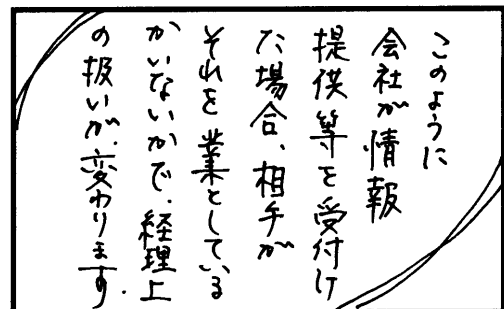 このように
会社が情報
提供等を受付け
た場合、相手が
それを業としている
かいないかで、経理上
の扱いが、変わります。